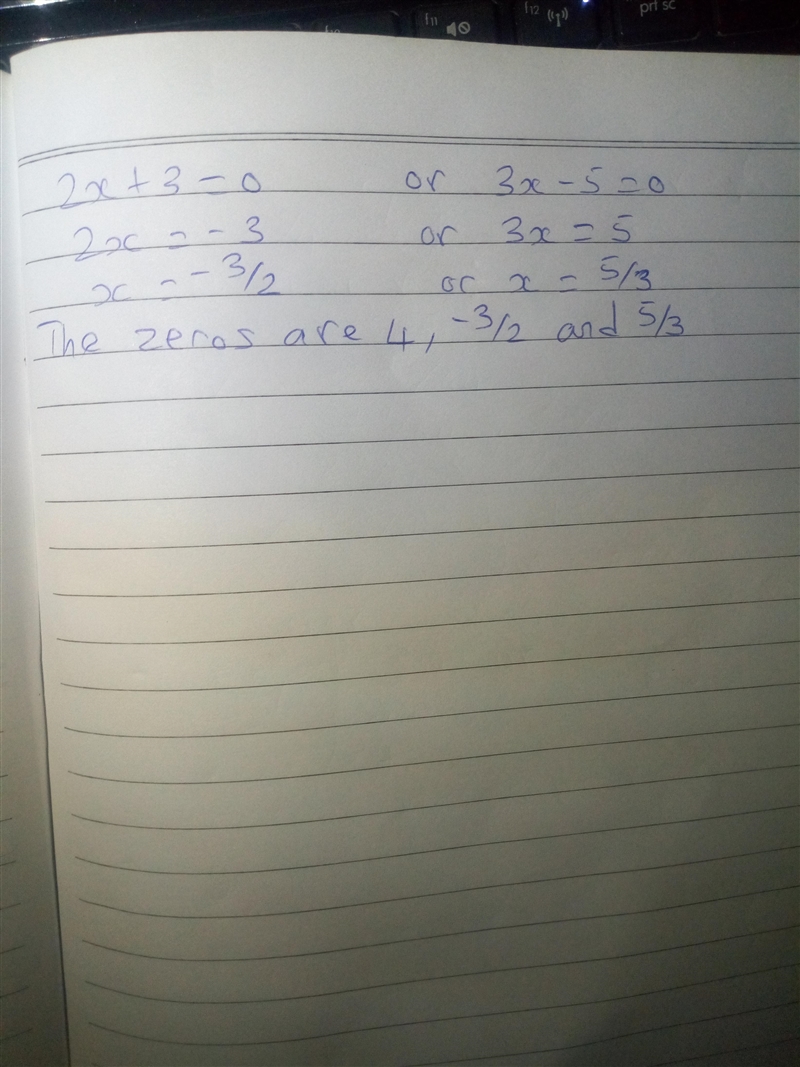 f11 f12 prt sc
2x + 3 = 0 or 3x - 5 = 0
2x = -3 or 3x = 5
x = -3/2 or x = 5/3
The zeros are 4, -3/2 and 5/3